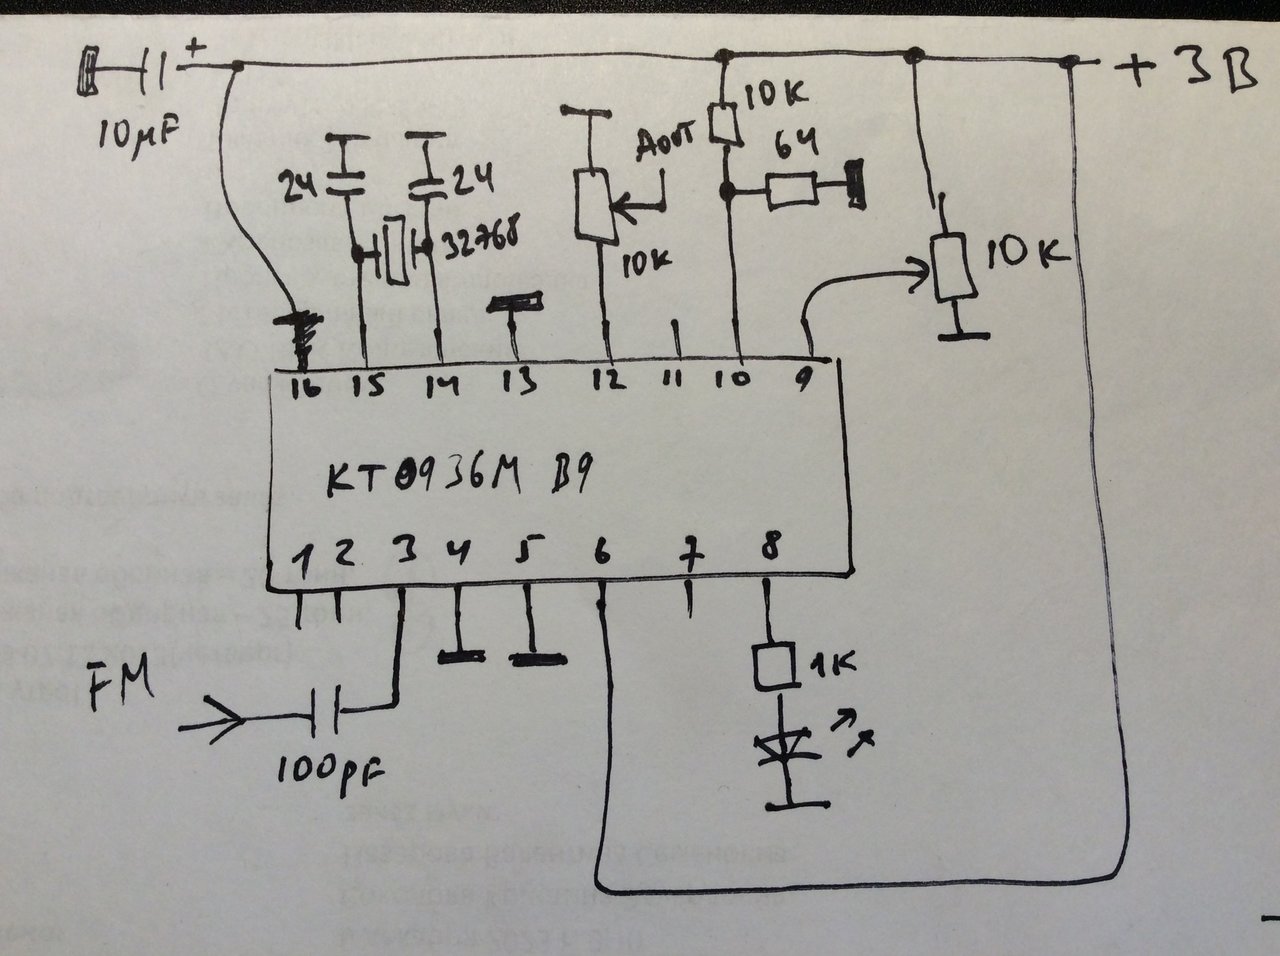 +
+ 3В
10µF
24
24
32768
Aout
10K
64
10K
10K
16 15 14 13 12 11 10 9
KT0936M B9
1 2 3 4 5 6 7 8
FM
100pF
1K